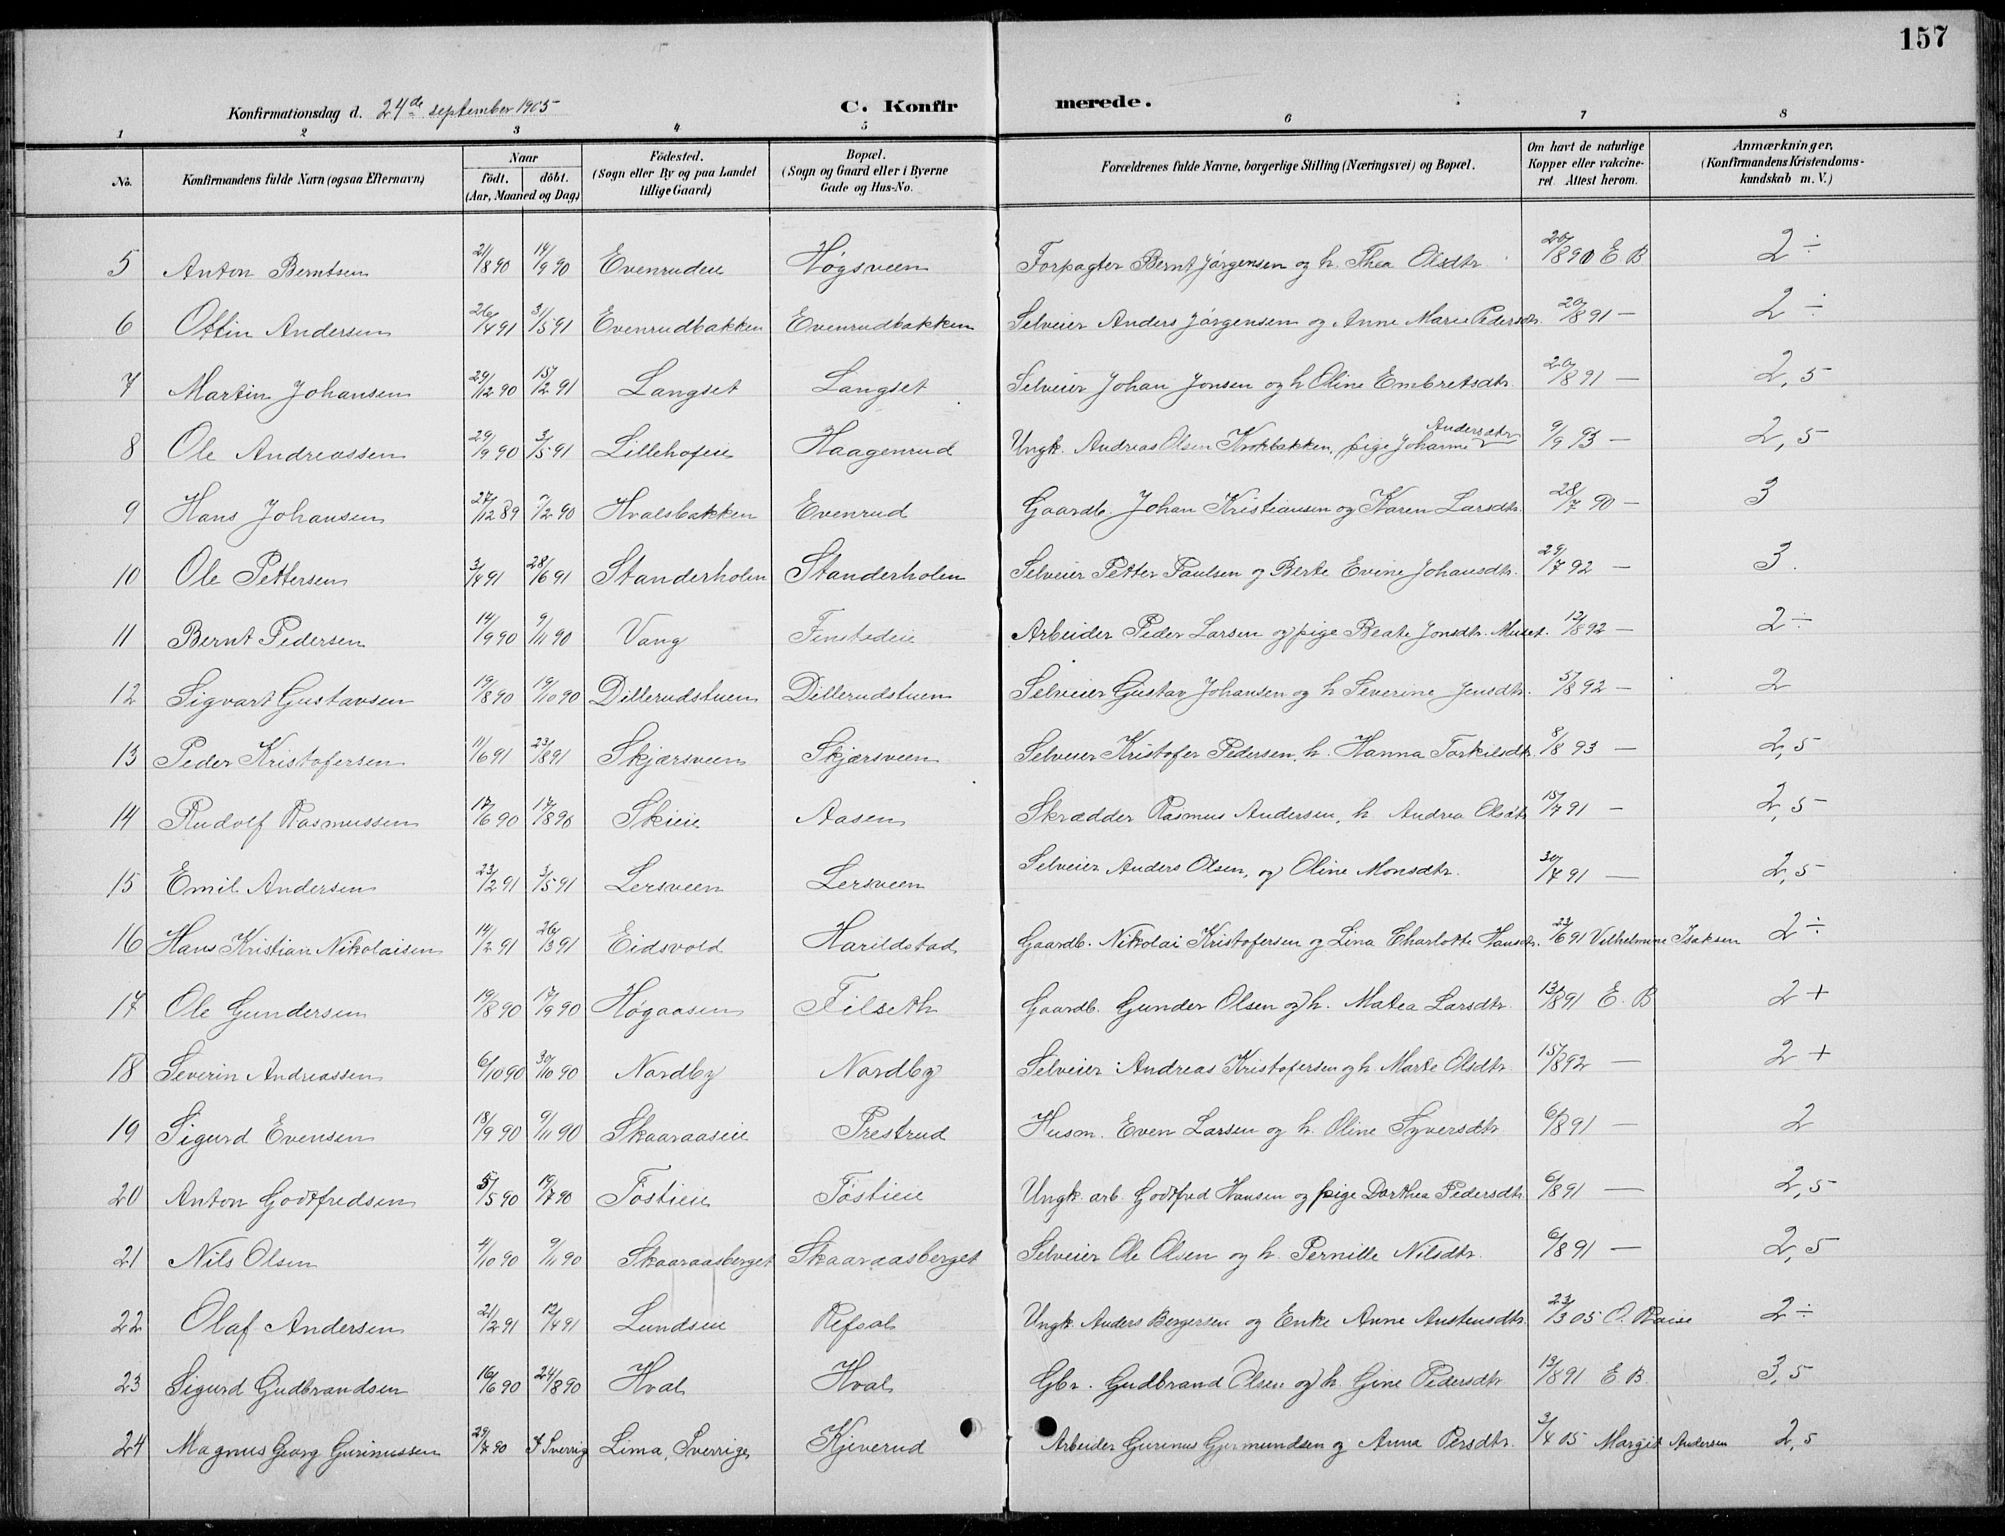 157
Konfirmationsdag d. 24de september 1905 C. Konfir merede.
1 2 3 4 5 6 7 8
No. Konfirmandens fulde Navn (ogsaa Efternavn) Naar födt. döbt. (Aar, Maaned og Dag) Födested. (Sogn eller By og paa Landet tillige Gaard) Bopæl. (Sogn og Gaard eller i Byerne Gade og Hus-No. Forældrenes fulde Navne, borgerlige Stilling (Næringsvei) og Bopæl. Om havt de naturlige Kopper eller vakcineret. Attest herom. Anmærkninger, (Konfirmandens Kristendomskundskab m. V.)
5 Anton Berntsen 21/8 90 14/9 90 Evenrudeie Høgsveen Forpagter Bernt Jørgensen og h. Thea Olsdtr. 20/8 90 E B 2 ÷
6 Ottin Andersen 26/4 91 31/5 91 Evenrudbakken Evenrudbakken Selveier Anders Jørgensen og Anne Marie Pedersdtr. 20/8 91 — 2 ÷
7 Martin Johansen 29/12 90 15/2 91 Langset Langset Selveier Johan Jonsen og h Oline Embretsdtr. 20/8 91 — 2,5
8 Ole Andreassen 29/9 90 3/5 91 Lillehofeie Haagenrud Ungk. Andreas Olsen Krokbakken, pige Johanne Andersdtr 9/9 93 — 2,5
9 Hans Johansen 27/12 89 7/2 90 Hvalsbakken Evenrud Gaardb. Johan Kristiansen og Karen Larsdtr. 28/7 90 — 3
10 Ole Pettersen 3/4 91 28/6 91 Standerholen Standerholen Selveier Petter Paulsen og Berte Evine Johansdtr. 29/7 92 — 3.
11 Bernt Pedersen 14/9 90 9/11 90 Vang Finstadeie Arbeider Peder Larsen og pige Beate Jonsdtr. 12/8 92 — 2 ÷
12 Sigvart Gustavsen 19/8 90 19/10 90 Dillerudstuen Dillerudstuen Selveier Gustav Johansen og h Severine Jensdtr. 5/8 92 — 2
13 Peder Kristofersen 11/6 91 23/8 91 Skjærsveen Skjærsveen Selveier Kristofer Pedersen, h. Hanna Torkilsdtr. 8/8 93 — 2,5
14 Rudolf Rasmussen 17/6 90 17/8 90 Skieie Aasen Skrædder Rasmus Andersen, h. Andrea Olsdtr 15/7 91 — 2,5
15 Emil Andersen 23/2 91 3/5 91 Lersveen Lersveen Selveier Anders Olsen, og Oline Monsdtr. 30/7 91 — 2,5
16 Hans Kristian Nikolaisen 14/2 91 26/3 91 Eidsvold Harildstad Gaardb. Nikolai Kristofersen og Lina Charlotte Hansdtr. 23/6 91 Vilhelmine Isaksen 2 ÷
17 Ole Gundersen 19/8 90 17/9 90 Høgaasen Filseth Gaardb. Gunder Olsen og h. Matea Larsdtr. 13/8 91 E. B 2 +
18 Severin Andreassen 6/10 90 30/10 90 Nordby Nordby Selveier Andreas Kristofersen og h. Marte Olsdtr. 15/8 92 — 2 +
19 Sigurd Evensen 18/9 90 9/11 90 Skaaraaseie Prestrud Husm. Even Larsen og h. Oline Syversdtr 6/8 91 — 2
20 Anton Godtfredsen 5/5 90 19/7 90 Tøstieie Tøstieie Ungk. arb. Godtfred Hansen og pige Dorthea Pedersdtr. 6/8 91 — 2,5
21 Nils Olsen 4/10 90 9/11 90 Skaaraasberget Skaaraasberget Selveier Ole Olsen og h. Pernille Nilsdtr. 6/8 91 — 2,5
22 Olaf Andersen 21/2 91 12/4 91 Lundseie Refsal Ungk. Anders Bergersen og Enke Anne Austensdtr. 23/3 05 O. 2 ÷
23 Sigurd Gudbrandsen 16/6 90 24/8 90 Hval Hval Gbr. Gudbrand Olsen og h. Gine Pedersdtr 13/8 91 E B. 3,5
24 Magnus Georg Gurinussen 29/7 90 I Sverrig Lima, Sverrige Kjeverud Arbeider Gurinus Gjermundsen og Anna Persdtr. 3/4 05 Margit Andersen 2,5